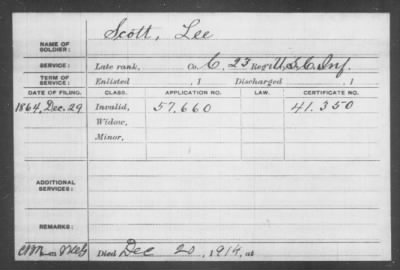 Scott, Lee
NAME OF SOLDIER:
SERVICE: Late rank, Co. C, 23 Reg't U.S.C. Inf.
TERM OF SERVICE: Enlisted , 1 Discharged , 1
DATE OF FILING. CLASS. APPLICATION NO. LAW. CERTIFICATE NO.
1864, Dec. 29 Invalid, 57.660 41.350
Widow,
Minor,
ADDITIONAL SERVICES:
REMARKS:
Died Dec 20, 1914, at